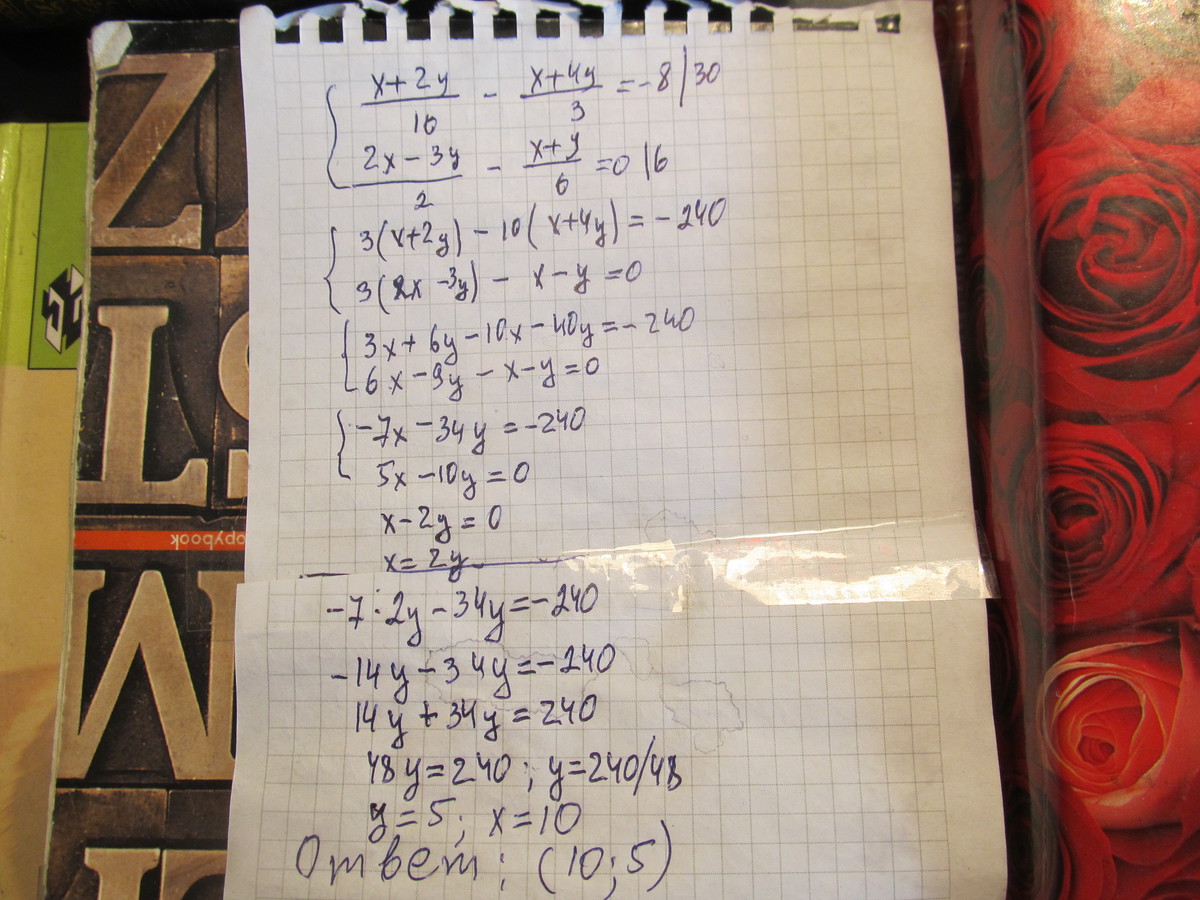 { (x+2y)/10 - (x+4y)/3 = -8 |30
(2x-3y)/2 - (x+y)/6 = 0 |6
{ 3(x+2y) - 10(x+4y) = -240
3(2x-3y) - x - y = 0
{ 3x+6y-10x-40y=-240
6x-9y-x-y=0
{ -7x-34y=-240
5x-10y=0
x-2y=0
x=2y
-7·2y-34y=-240
-14y-34y=-240
14y+34y=240
48y=240; y=240/48
y=5; x=10
Ответ: (10;5)
opybook